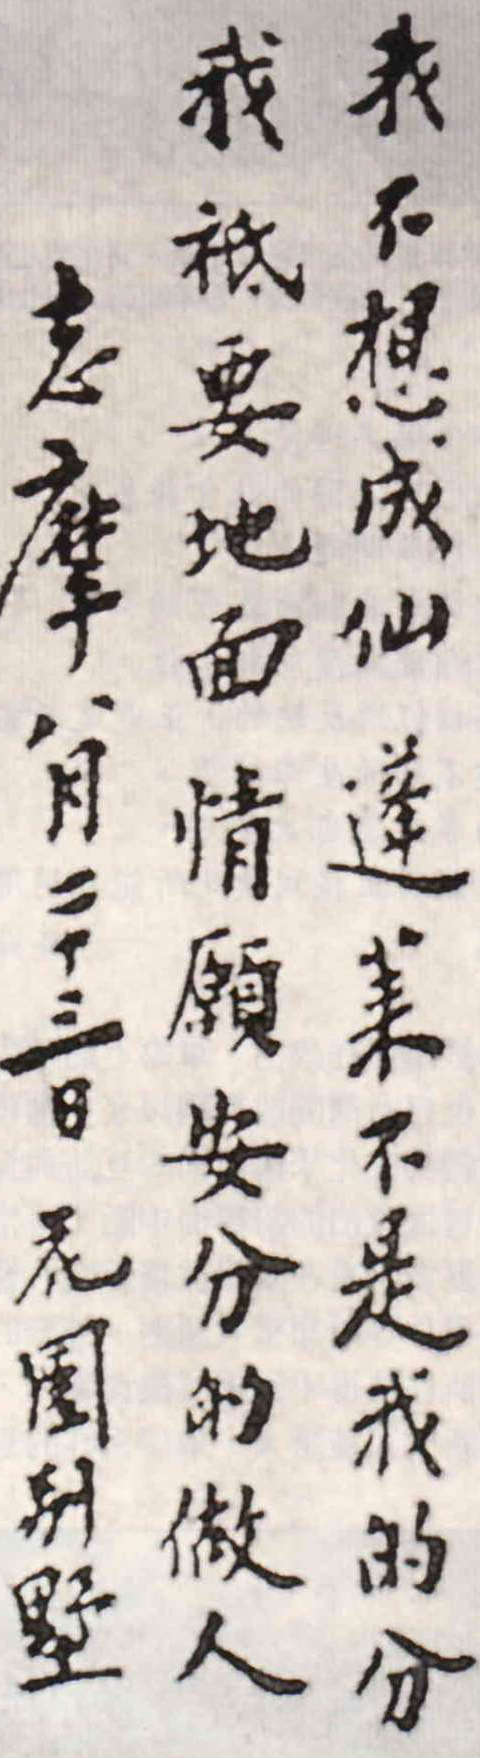 我不想成仙 蓬莱不是我的分
我祗要地面 情願安分的做人
志摩 八月二十三日 花園別墅